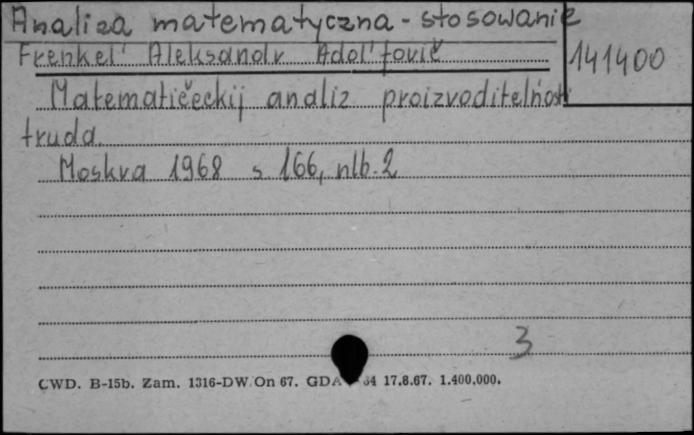 Analiza matematyczna - stosowanie
Frenkel' Aleksandr Adol'fovič
141400
Matematičeckij analiz proizvoditel'nosti
truda.
Moskva 1968 s 166, nlb. 2
3
CWD. B-15b. Zam. 1316-DW/On 67. GDA 64 17.8.67. 1.400.000.